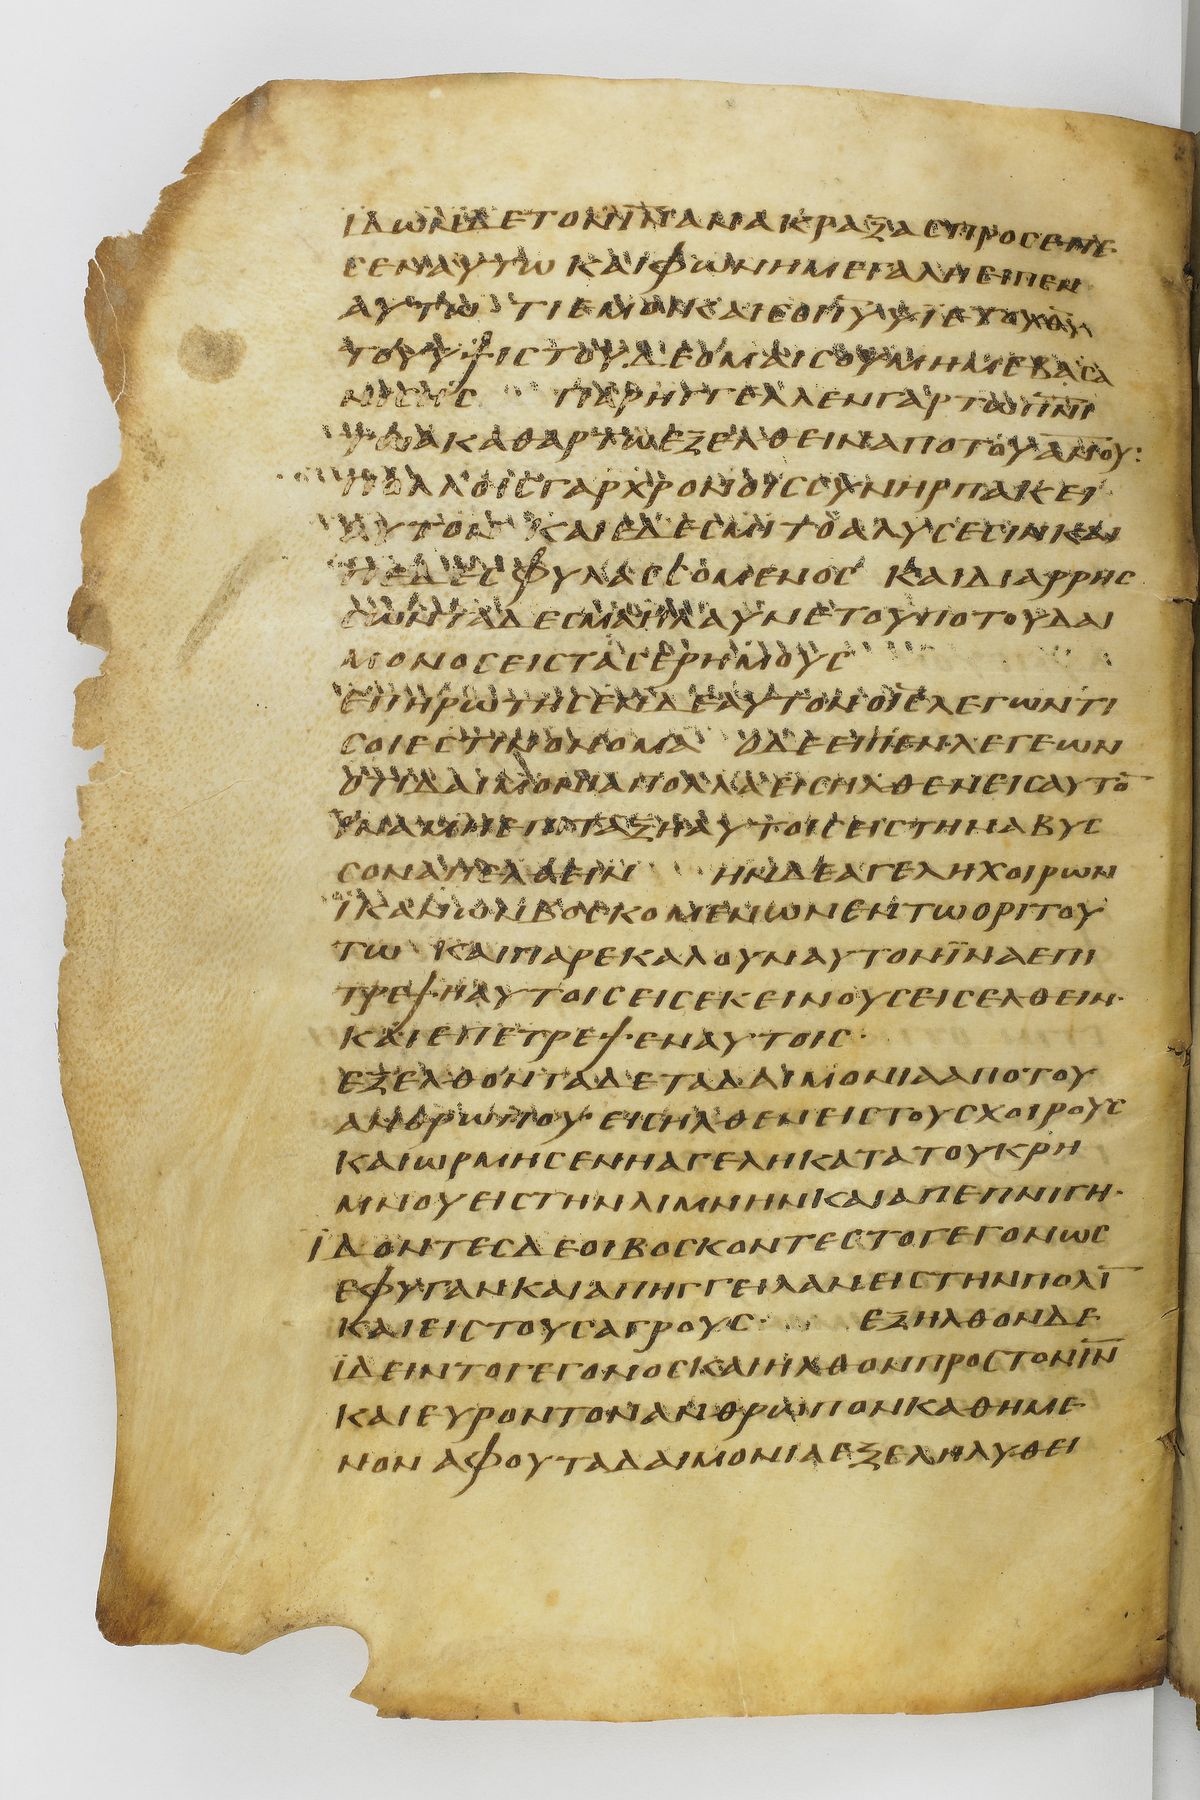 ΙΔΩΝΔΕΤΟΝΙ̅Ν̅ΑΝΑΚΡΑΞΑϹΠΡΟϹΕΠΕ
ϹΕΝΑΥΤΩ ΚΑΙΦΩΝΗΜΕΓΑΛΗΕΙΠΕΝ
ΑΥΤΩ ΤΙΕΜΟΙΚΑΙϹΟΙΙ̅Υ̅ΥΙΕΤΟΥΘ̅Υ̅
ΤΟΥΥΨΙϹΤΟΥ ΔΕΟΜΑΙϹΟΥΜΗΜΕΒΑϹΑ
ΝΙϹΗϹ ΠΑΡΗΓΓΕΛΛΕΝΓΑΡΤΩΠ̅Ν̅Ι̅
ΤΩΑΚΑΘΑΡΤΩΕΞΕΛΘΕΙΝΑΠΟΤΟΥΑ̅Ν̅Ο̅Υ̅:
ΠΟΛΛΟΙϹΓΑΡΧΡΟΝΟΙϹϹΥΝΗΡΠΑΚΕΙ
ΑΥΤΟΝ ΚΑΙΕΔΕϹΜΙΤΟΑΛΥϹΕϹΙΝΚΑΙ
ΠΕΔΕϹΦΥΛΑϹϹΟΜΕΝΟϹ ΚΑΙΔΙΑΡΡΗϹ
ϹΩΝΤΑΔΕϹΜΑΗΛΑΥΝΕΤΟΥΠΟΤΟΥΔΑΙ
ΜΟΝΟϹΕΙϹΤΑϹΕΡΗΜΟΥϹ
ΕΠΗΡΩΤΗϹΕΝΔΕΑΥΤΟΝΟΙ̅Ϲ̅ΛΕΓΩΝΤΙ
ϹΟΙΕϹΤΙΝΟΝΟΜΑ ΟΔΕΕΙΠΕΝΛΕΓΕΩΝ
ΟΤΙΔΑΙΜΟΝΙΑΠΟΛΛΑΕΙϹΗΛΘΕΝΕΙϹΑΥΤΟ̅
ΙΝΑΜΗΕΠΙΤΑΞΗΑΥΤΟΙϹΕΙϹΤΗΝΑΒΥϹ
ϹΟΝΑΠΕΛΘΕΙΝ ΗΝΔΕΑΓΕΛΗΧΟΙΡΩΝ
ΙΚΑΝΩΝΒΟϹΚΟΜΕΝΩΝΕΝΤΩΟΡΙΤΟΥ
ΤΩ ΚΑΙΠΑΡΕΚΑΛΟΥΝΑΥΤΟΝΙΝΑΕΠΙ
ΤΡΕΨΗΑΥΤΟΙϹΕΙϹΕΚΕΙΝΟΥϹΕΙϹΕΛΘΕΙΝ·
ΚΑΙΕΠΕΤΡΕΨΕΝΑΥΤΟΙϹ·
ΕΞΕΛΘΟΝΤΑΔΕΤΑΔΑΙΜΟΝΙΑΑΠΟΤΟΥ
ΑΝΘΡΩΠΟΥ ΕΙϹΗΛΘΕΝΕΙϹΤΟΥϹΧΟΙΡΟΥϹ
ΚΑΙΩΡΜΗϹΕΝΗΑΓΕΛΗΚΑΤΑΤΟΥΚΡΗ
ΜΝΟΥΕΙϹΤΗΝΛΙΜΝΗΝΚΑΙΑΠΕΠΝΙΓΗ·
ΙΔΟΝΤΕϹΔΕΟΙΒΟϹΚΟΝΤΕϹΤΟΓΕΓΟΝΩϹ
ΕΦΥΓΑΝΚΑΙΑΠΗΓΓΕΙΛΑΝΕΙϹΤΗΝΠΟΛΙ̅
ΚΑΙΕΙϹΤΟΥϹΑΓΡΟΥϹ· ΕΞΗΛΘΟΝΔΕ
ΙΔΕΙΝΤΟΓΕΓΟΝΟϹΚΑΙΗΛΘΟΝΠΡΟϹΤΟΝΙ̅Ν̅
ΚΑΙΕΥΡΟΝΤΟΝΑΝΘΡΩΠΟΝΚΑΘΗΜΕ
ΝΟΝΑΦΟΥΤΑΔΑΙΜΟΝΙΑΕΞΕΛΗΛΥΘΕΙ